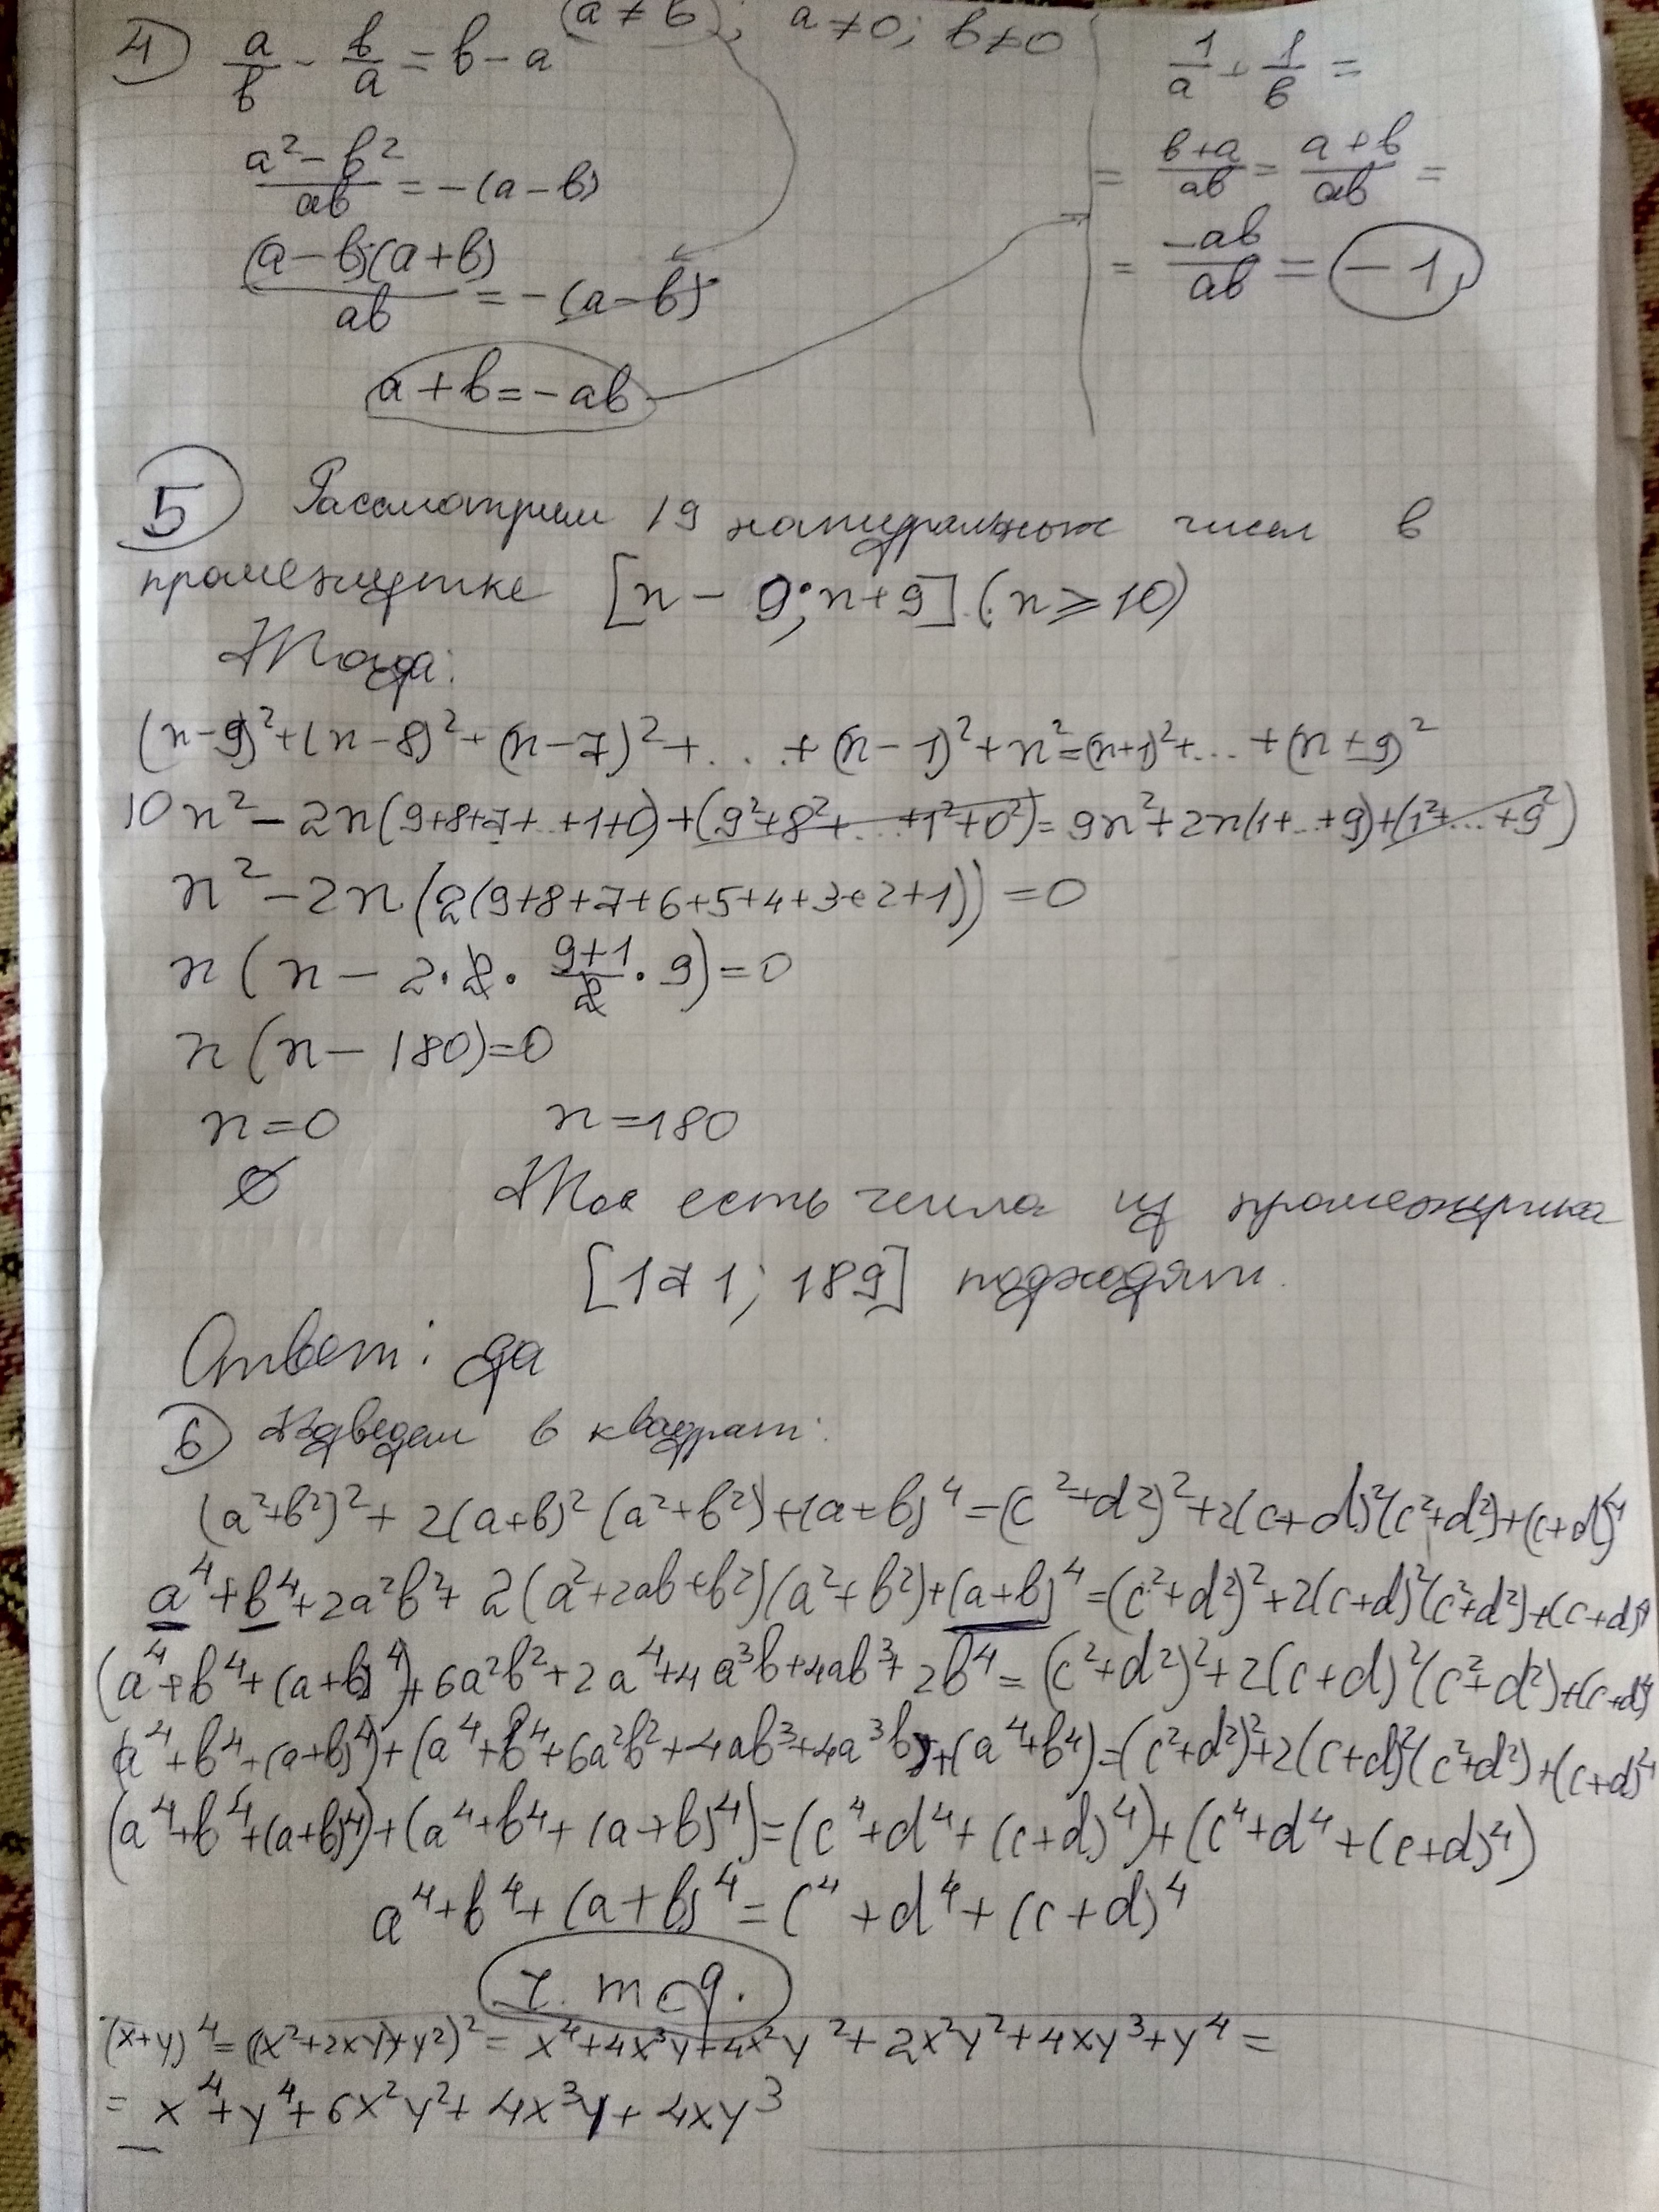 4) a/b - b/a = b - a (a ≠ b); a ≠ 0; b ≠ 0
(a² - b²)/ab = -(a - b)
(a - b)(a + b)/ab = -(a - b)
a + b = -ab
1/a + 1/b =
= (b+a)/ab = (a+b)/ab =
= -ab/ab = -1
5 Рассмотрим 19 натуральных чисел в
промежутке [n - 9; n+9] (n ⩾ 10)
Тогда:
(n-9)² + (n-8)² + (n-7)² + ... + (n-1)² + n² = (n+1)² + ... + (n+9)²
10n² - 2n(9+8+7+...+1+0) + (9²+8²+...+1²+0²) = 9n² + 2n(1+...+9) + (1²+...+9²)
n² - 2n(2(9+8+7+6+5+4+3+2+1)) = 0
n(n - 2·2·(9+1)/2·9) = 0
n(n - 180) = 0
n = 0 n = 180
∅ То есть числа из промежутка
[171; 189] подходят.
Ответ: да
6) Возведем в квадрат:
(a²+b²)² + 2(a+b)²(a²+b²) + (a+b)⁴ = (c²+d²)² + 2(c+d)²(c²+d²) + (c+d)⁴
a⁴ + b⁴ + 2a²b² + 2(a²+2ab+b²)(a²+b²) + (a+b)⁴ = (c²+d²)² + 2(c+d)²(c²+d²) + (c+d)⁴
(a⁴+b⁴+(a+b)⁴) + 6a²b² + 2a⁴ + 4a³b + 4ab³ + 2b⁴ = (c²+d²)² + 2(c+d)²(c²+d²) + (c+d)⁴
(a⁴+b⁴+(a+b)⁴) + (a⁴+b⁴+6a²b²+4ab³+4a³b) + (a⁴+b⁴) = (c²+d²)² + 2(c+d)²(c²+d²) + (c+d)⁴
(a⁴+b⁴+(a+b)⁴) + (a⁴+b⁴+(a+b)⁴) = (c⁴+d⁴+(c+d)⁴) + (c⁴+d⁴+(c+d)⁴)
a⁴ + b⁴ + (a+b)⁴ = c⁴ + d⁴ + (c+d)⁴
ч. т д.
(x+y)⁴ = ((x²+2xy)+y²)² = x⁴+4x³y+4x²y²+2x²y²+4xy³+y⁴ =
= x⁴+y⁴+6x²y²+4x³y+4xy³